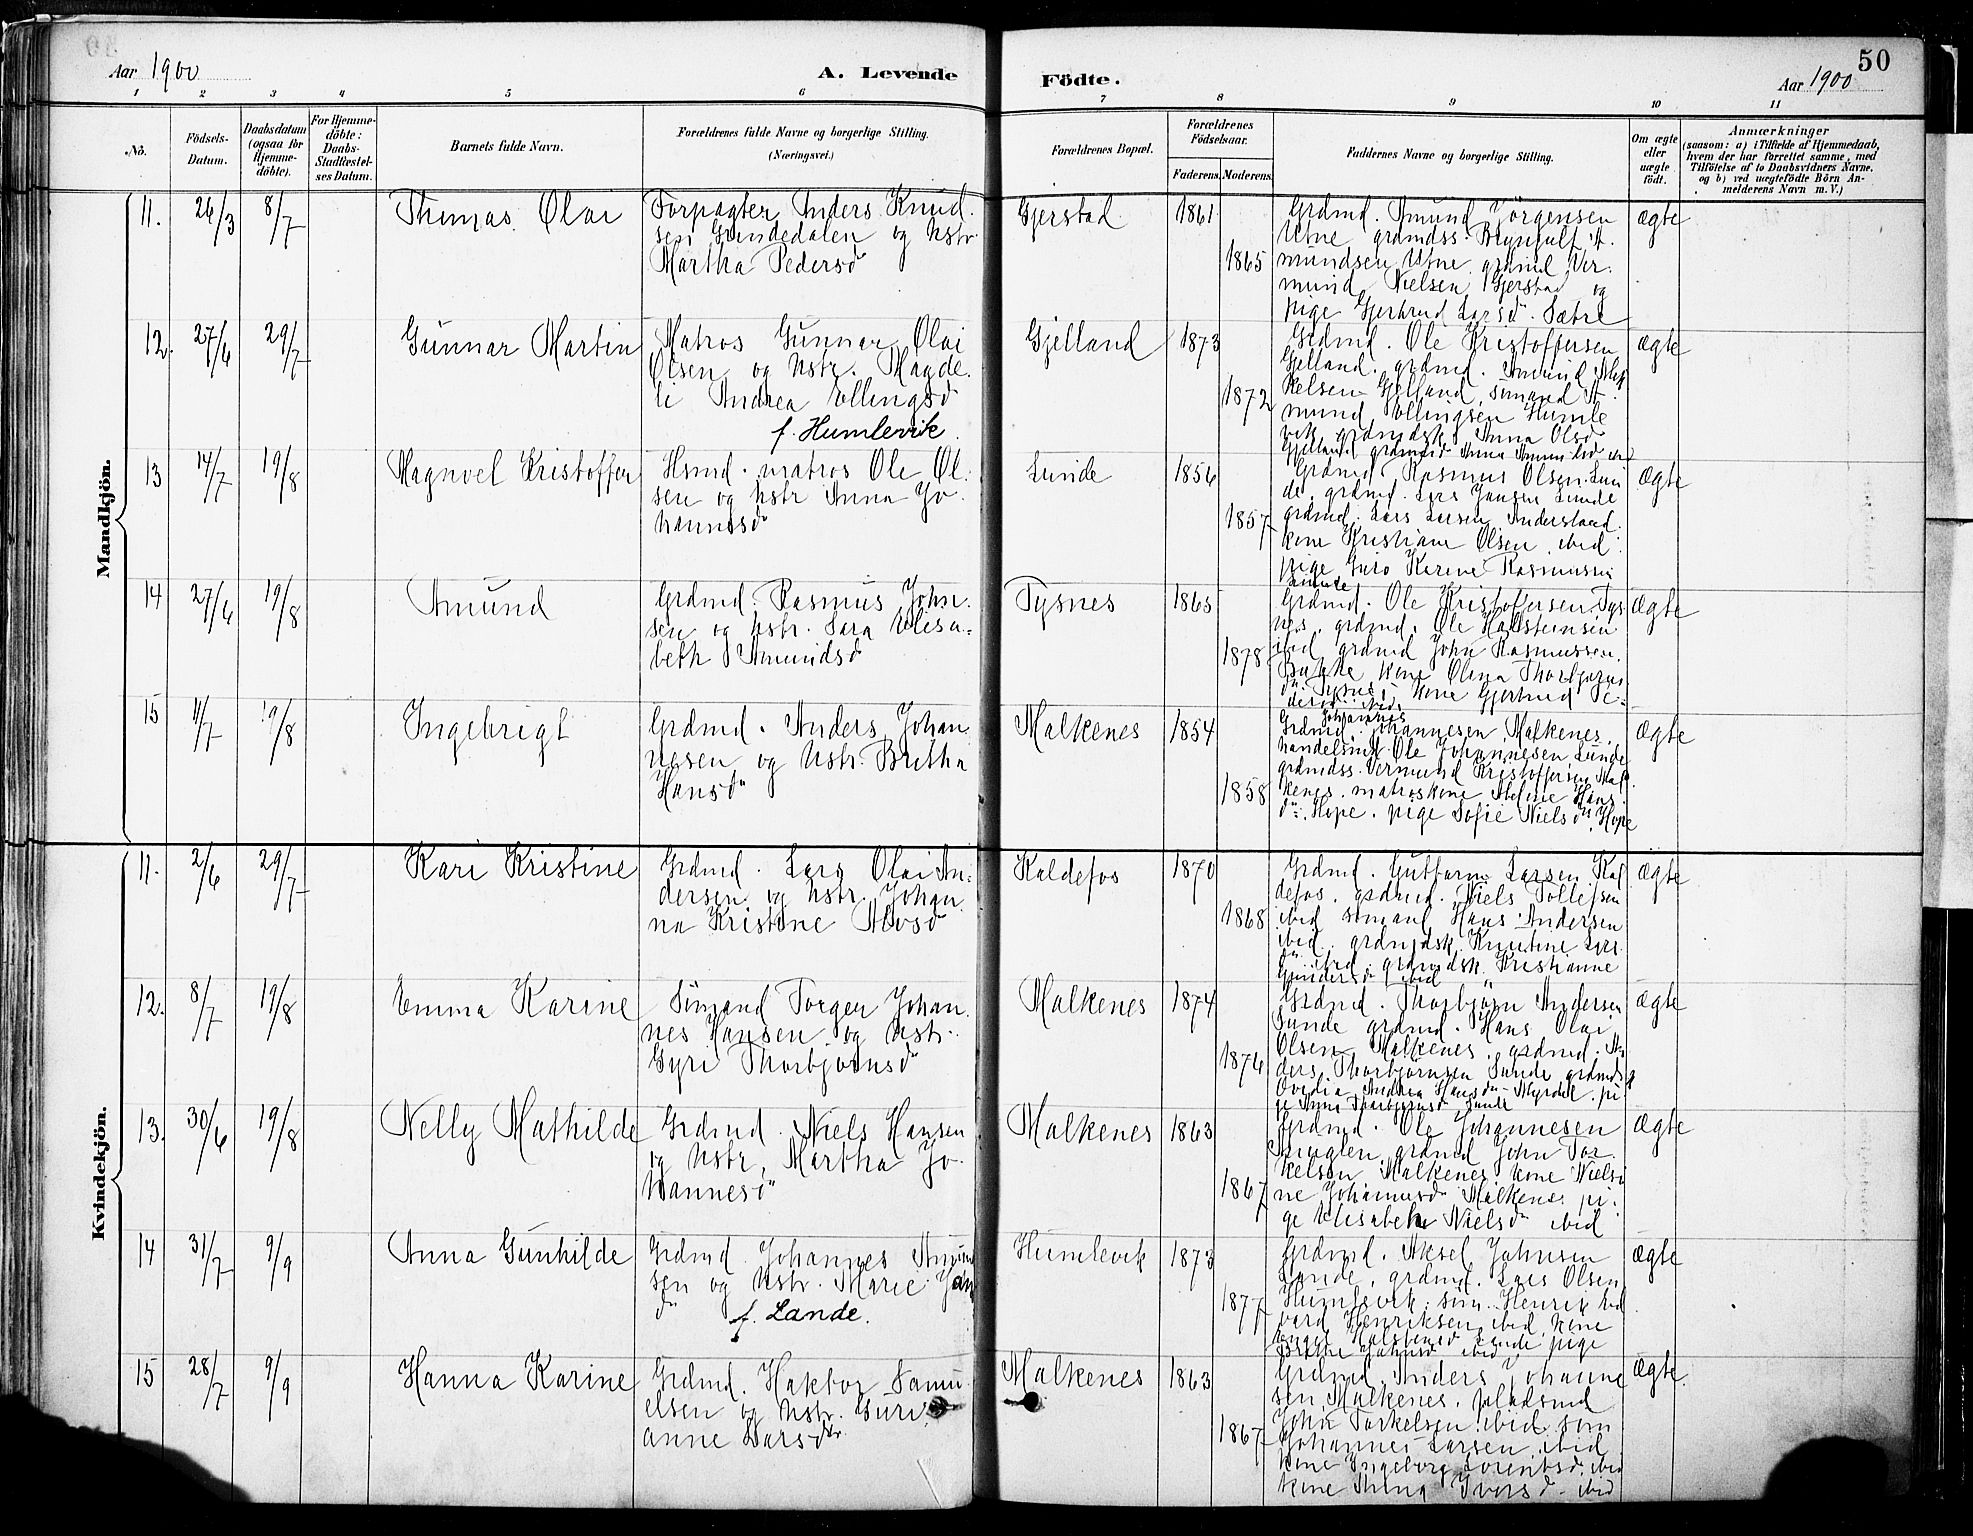 Aar 1900
A. Levende
Födte.
Aar 1900
50
1 2 3 4 5 6 7 8 9 10 11
No.
Födsels-
Datum.
Daabsdatum
(ogsaa for
Hjemme-
döbte).
For Hjemme-
döbte:
Daabs-
Stadfæstel-
ses Datum.
Barnets fulde Navn.
Forældrenes fulde Navne og borgerlige Stilling.
(Næringsvei.)
Forældrenes Bopæl.
Forældrenes
Födselsaar.
Faderens.
Moderens.
Faddernes Navne og borgerlige Stilling.
Om ægte
eller
uægte
födt.
Anmærkninger
(saasom: a) i Tilfælde af Hjemmedaab,
hvem der har forrettet samme, med
Tilföielse af to Daabsvidners Navne,
og b) ved uægtefödte Börn An-
melderens Navn m. V.)
Mandkjön.
11.
26/3
8/7
Thomas Olai
Forpagter Anders Knud-
sen Grindedalen og Hstr
Martha Pedersd
Gjerstad
1861
1865
Grdmd. Amund Jörgensen
Utne grdmdss. Brynjulf A-
mundsen Utne grdmd Ver-
mund Nielsen Gjerstad og
pige Gjertrud Larsd. Sætre
ægte
12.
27/6
29/7
Gunnar Martin
Matros Gunnar Olai
Olsen og Hstr. Magde-
li Andrea Ellingsd
f. Humlevik
Gjelland
1873
1872
Grdmd. Ole Kristoffersen
Gjelland, grdmd. Amund
kelsen Gjelland, sömand A-
mund Ellingsen Humle
vik grdmdsk Anna Olsd
Gjelland, Anna
ægte
13
14/7
19/8
Magnvel Kristoffer
Hsmd. matros Ole Ol-
sen og Hstr Anna Jo-
hannesdr
Lunde
1856
1857
Grdmd Rasmus Olsen Lun
de, grdmd. Lars Jansen Lunde
grdmd. Lars Larsen Anderstaad
kone Kristiane Olsen ibid
pige Guro Karine Rasmussen
Lunde
ægte
14
27/6
19/8
Amund
Grdmd. Rasmus John-
sen og Hstr. Sara Elisa-
beth Amundsd
Tysnes
1865
1878
Grdmd. Ole Kristoffersen Tys
nes, grdmd. Ole Hallsteinsen
ibid grdmd John Rasmussen
Bakke kone Olina Thorbjörns
dr Tysnes, kone Gjertrud Pe-
dersd ibid
ægte
15
11/7
19/8
Ingebrigt
Grdmd. Anders Johan
nesen og Hstr. Britha
Hansdr
Malkenes
1854
1858
Johannes
Grdmd. Johannesen Malkenes,
handelsmd. Ole Johannesen Lunde
grdmdss. Vermund Kristoffersen Mal
kenes. matroskone Hans
dr. Hope. pige Sofie Nielsdr Hope
ægte
Kvindekjön.
11.
2/6
29/7
Kari Kristine
Grdmd. Lars Olai An-
dersen og Hstr. Johan
na Kristine Alvsd
Kaldefos
1870
1868
Grdmd. Guttorm Larsen Kal
defos. grdmd. Niels Tollefsen
ibid sömand Hans Andersen
ibid. grdmdsk Knutine Lars
dr ibid. grdmdsk. Kristianne
Gundersd ibid
ægte
12.
8/7
19/8
Emma Karine
Sömand Torger Johan
nes Hansen og Hstr.
Gyri Thorbjörnsdr
Malkenes
1874
1876
Grdmd. Thorbjörn Andersen
Lunde grdmd. Hans Olai
Olsen Malkenes. grdmd. An
ders Thorbjörnsen Lunde grdmdsk
Ovedia Andrea Hansdr Myrdal. pi-
ge Anna Thorbjörnsd Lunde
ægte
13.
30/6
19/8
Nelly Mathilde
Grdmd. Niels Hansen
og Hstr, Martha Jo-
hannesdr
Malkenes
1863
1867
Grdmd. Ole Johannesen
grdmd John Tor-
kelsen Malkenes. kone Nielsi
ne Johannesd Malkenes pi-
ge Elisabeth Nielsdr ibid
ægte
14
31/7
9/9
Anna Gunhilde
Grdmd Johannes Amund
sen og Hstr. Marie Jahn
dr f. Lande.
Humlevik
1873
1877
Grdmd. Aksel Jahnsen
Lande, grdmd. Lars Olsen
Humlevik. söm. Henrik Ed
vard Henriksen ibid, kone
Lande pige
ibid
ægte
15
28/7
9/9
Hanna Karine
Grdmd. Haktor Samu-
elsen og Hstr. Guri
anne Larsdr
Malkenes
1863
1867
Grdmd. Anders Johanne
sen Malkenes, pladsmd
John Torkelsen ibid. söm
Johannes Larsen ibid
kone Ingeborg Lorentsd. ibid
kone Anna Iversd. ibid
ægte.